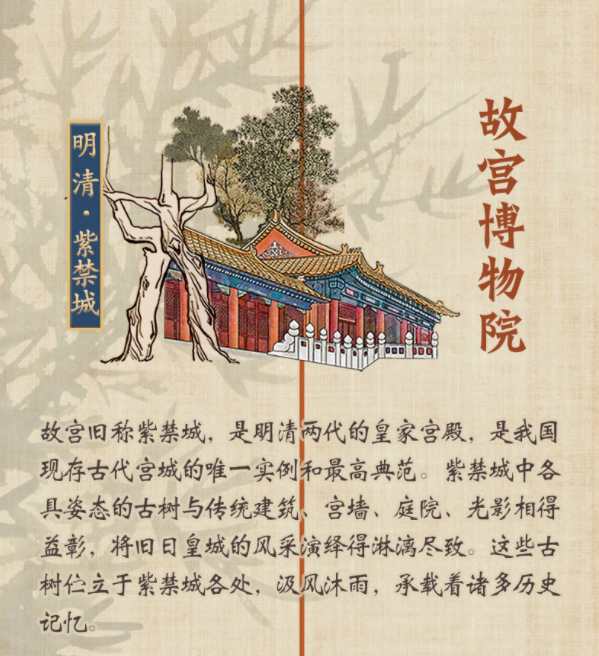 故宫博物院
明清·紫禁城
故宫旧称紫禁城，是明清两代的皇家宫殿，是我国
现存古代宫城的唯一实例和最高典范。紫禁城中各
具姿态的古树与传统建筑、宫墙、庭院、光影相得
益彰，将旧日皇城的风采演绎得淋漓尽致。这些古
树伫立于紫禁城各处，汲风沐雨，承载着诸多历史
记忆。